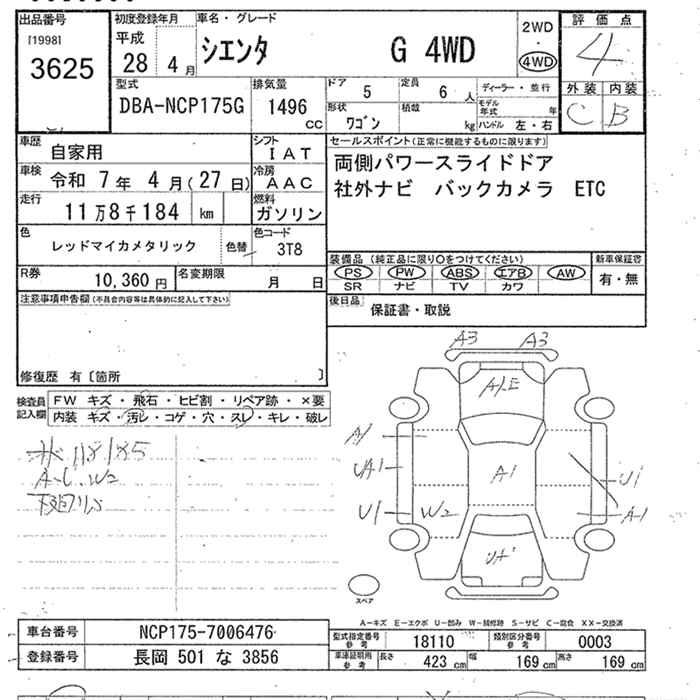 出品番号
[1998]
3625
初度登録年月
平成
28年 4月
車名・グレード
シエンタ G 4WD
2WD
・
4WD
評価点
4
外装 内装
C B
型式
DBA-NCP175G
排気量
1496
CC
ドア 5
定員 6人
ディーラー・並行
形状 ワゴン
積載 kg
モデル年式 年
ハンドル 左・右
車歴 自家用
シフト IAT
車検 令和 7年 4月(27日)
冷房 AAC
走行 11万8千184 km
燃料 ガソリン
色 レッドマイカメタリック
色替
色コード 3T8
R券 10,360円
名変期限 月 日
セールスポイント(正常に機能するものに限ります)
両側パワースライドドア
社外ナビ バックカメラ ETC
装備品 (純正品に限り○をつけてください)
PS PW ABS エアB AW
SR ナビ TV カワ
新車保証書
有・無
後日品 保証書・取説
注意事項申告欄(不具合内容等は具体的に記入して下さい)
修復歴 有〔箇所 〕
検査員記入欄
FW キズ・飛石・ヒビ割・リペア跡・×要
内装 キズ・汚レ・コゲ・穴・スレ・キレ・破レ
118185
A-U. W2
A3 A3
A1
A1
UA1
U1
W2
U1
A1
スペア
A-キズ E-エクボ U-凹み W-補修跡 S-サビ C-腐食 XX-交換済
車台番号 NCP175-7006476
登録番号 長岡 501 な 3856
型式指定番号 参考 18110
類別区分番号 参考 0003
車庫証明用 参考 長さ 423cm 幅 169cm 高さ 169cm